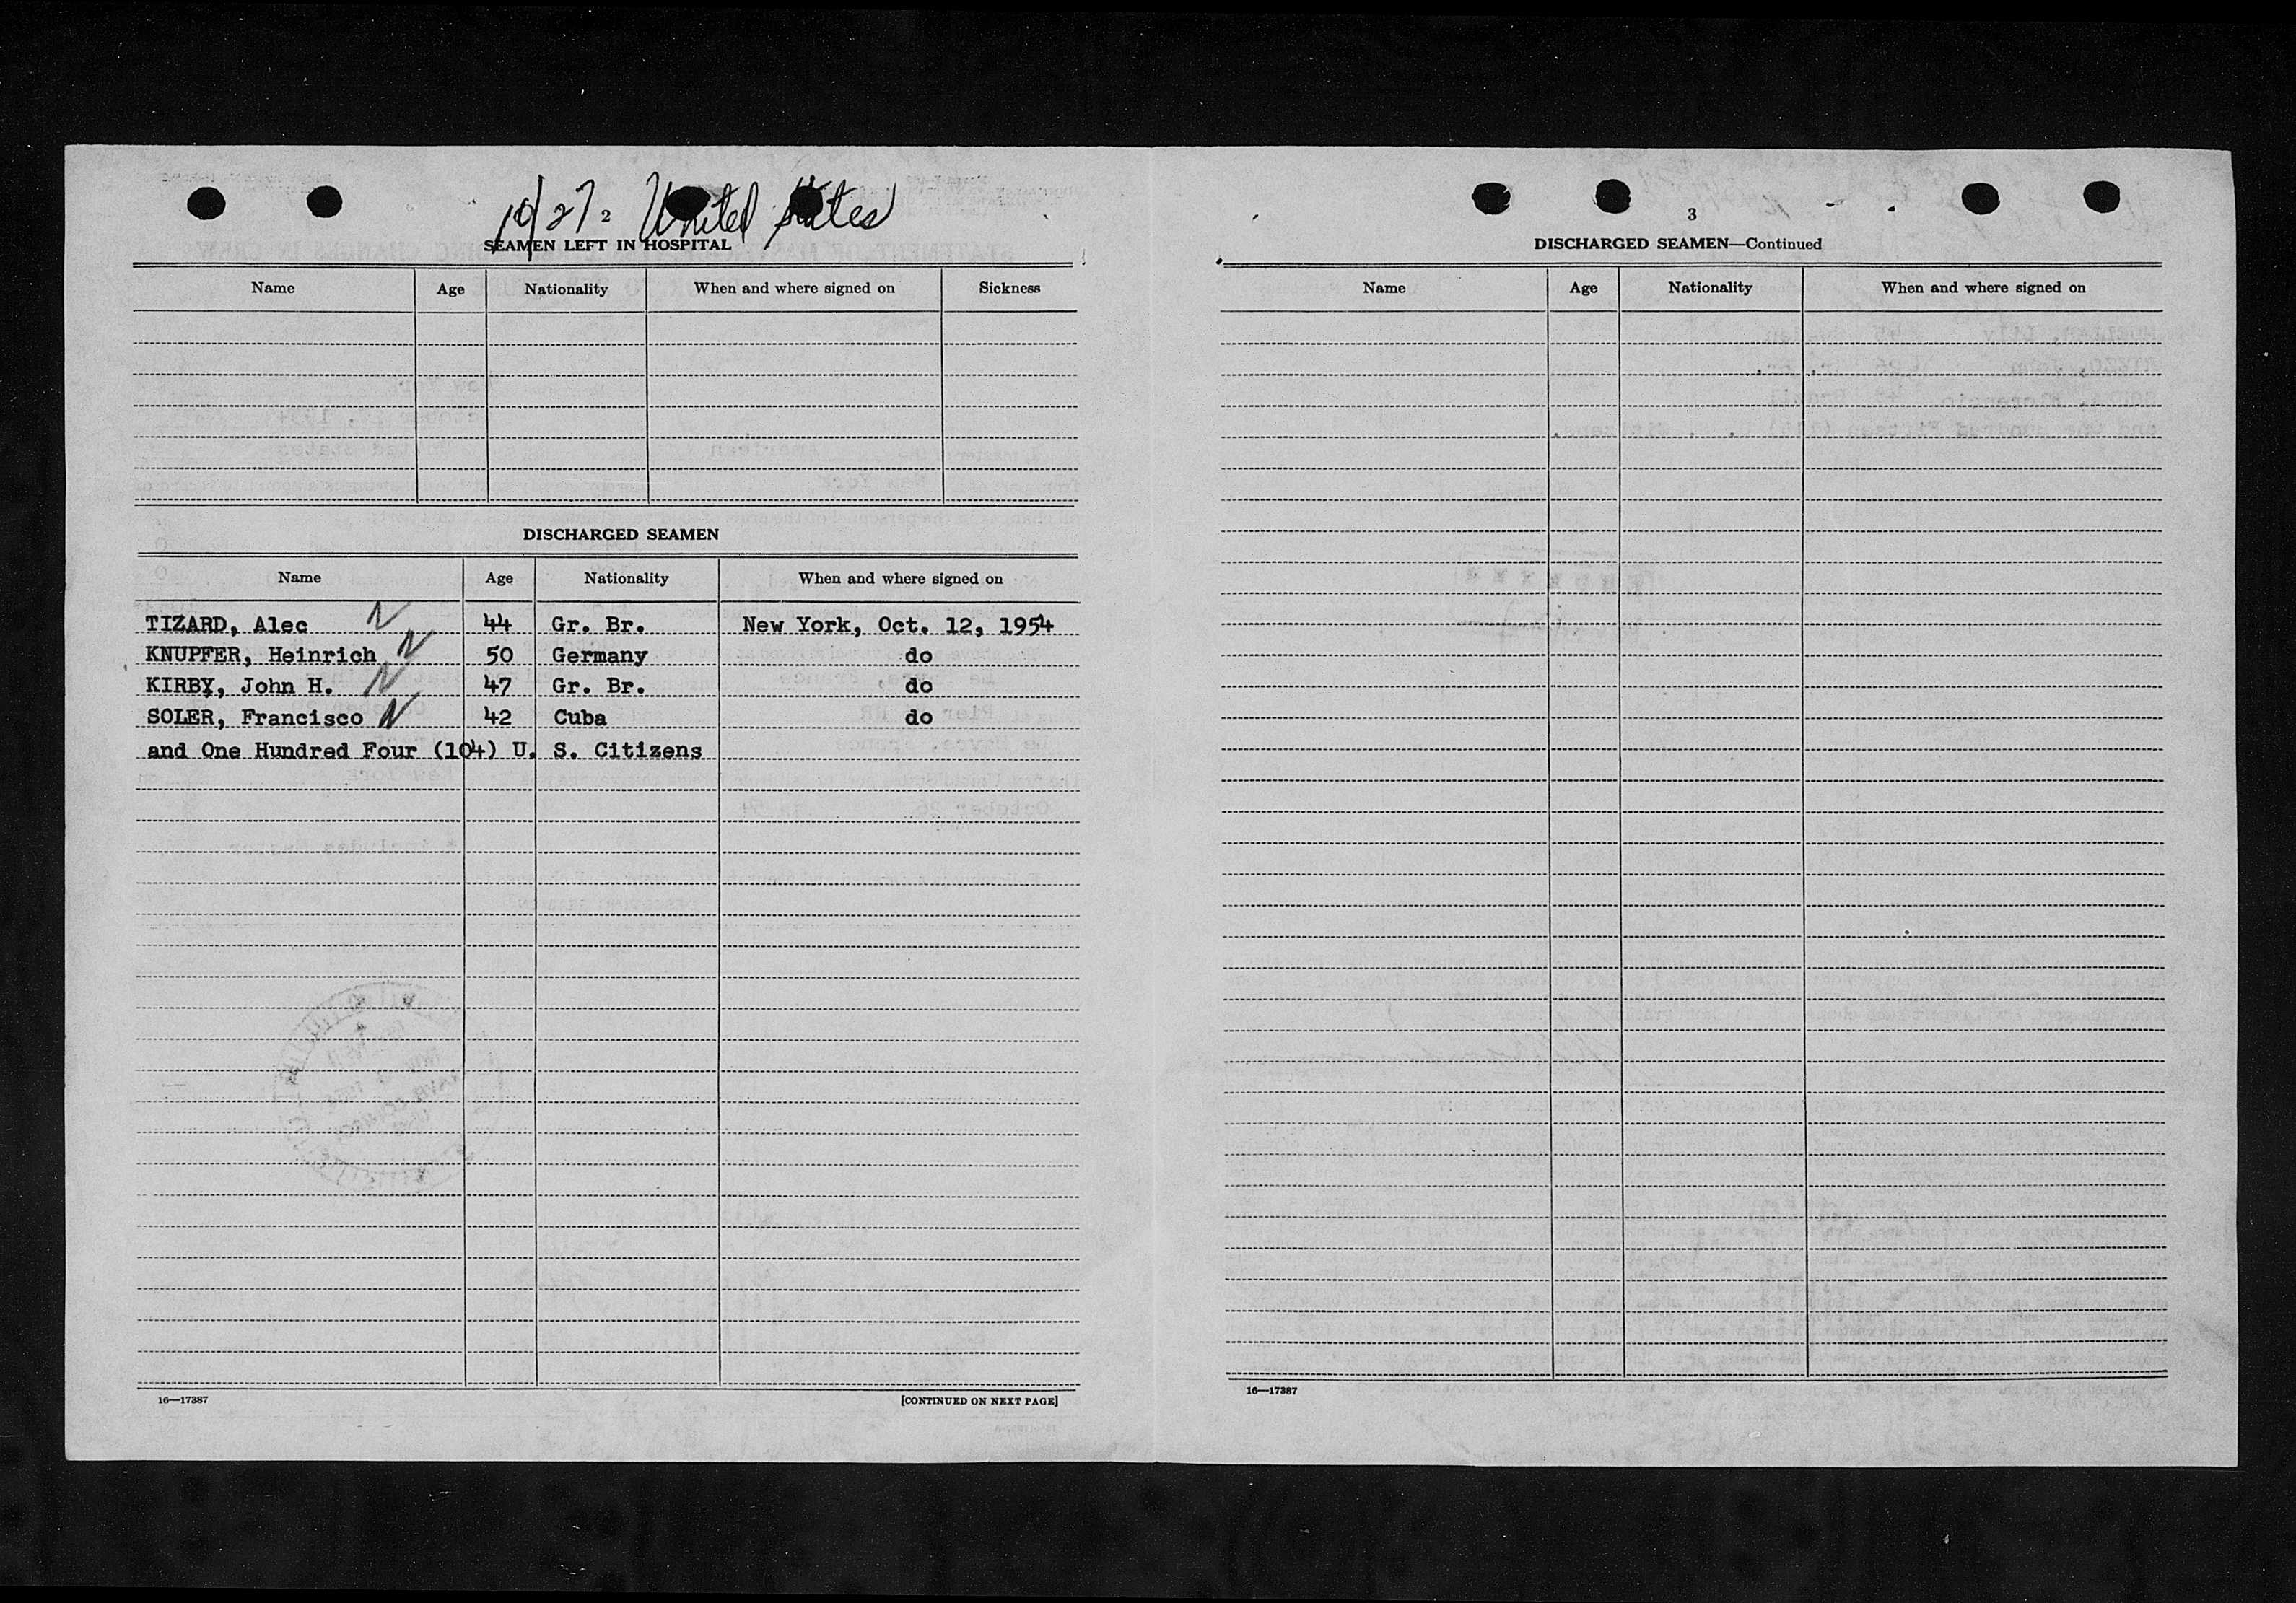 10/27 United States
2
SEAMEN LEFT IN HOSPITAL
Name Age Nationality When and where signed on Sickness
DISCHARGED SEAMEN
Name Age Nationality When and where signed on
TIZARD, Alec N 44 Gr. Br. New York, Oct. 12, 1954
KNUPFER, Heinrich N 50 Germany do
KIRBY, John H. N 47 Gr. Br. do
SOLER, Francisco N 42 Cuba do
and One Hundred Four (104) U. S. Citizens
16—17387 [CONTINUED ON NEXT PAGE]
3
DISCHARGED SEAMEN—Continued
Name Age Nationality When and where signed on
16—17387